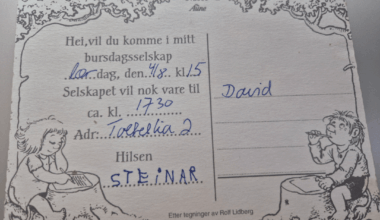 Hei, vil du komme i mitt
bursdagsselskap
lør.dag, den 4/8. kl 15
Selskapet vil nok vare til
ca. kl. 1730
David
Adr: 2
Hilsen
STEINAR
Etter tegninger av Rolf Lidberg